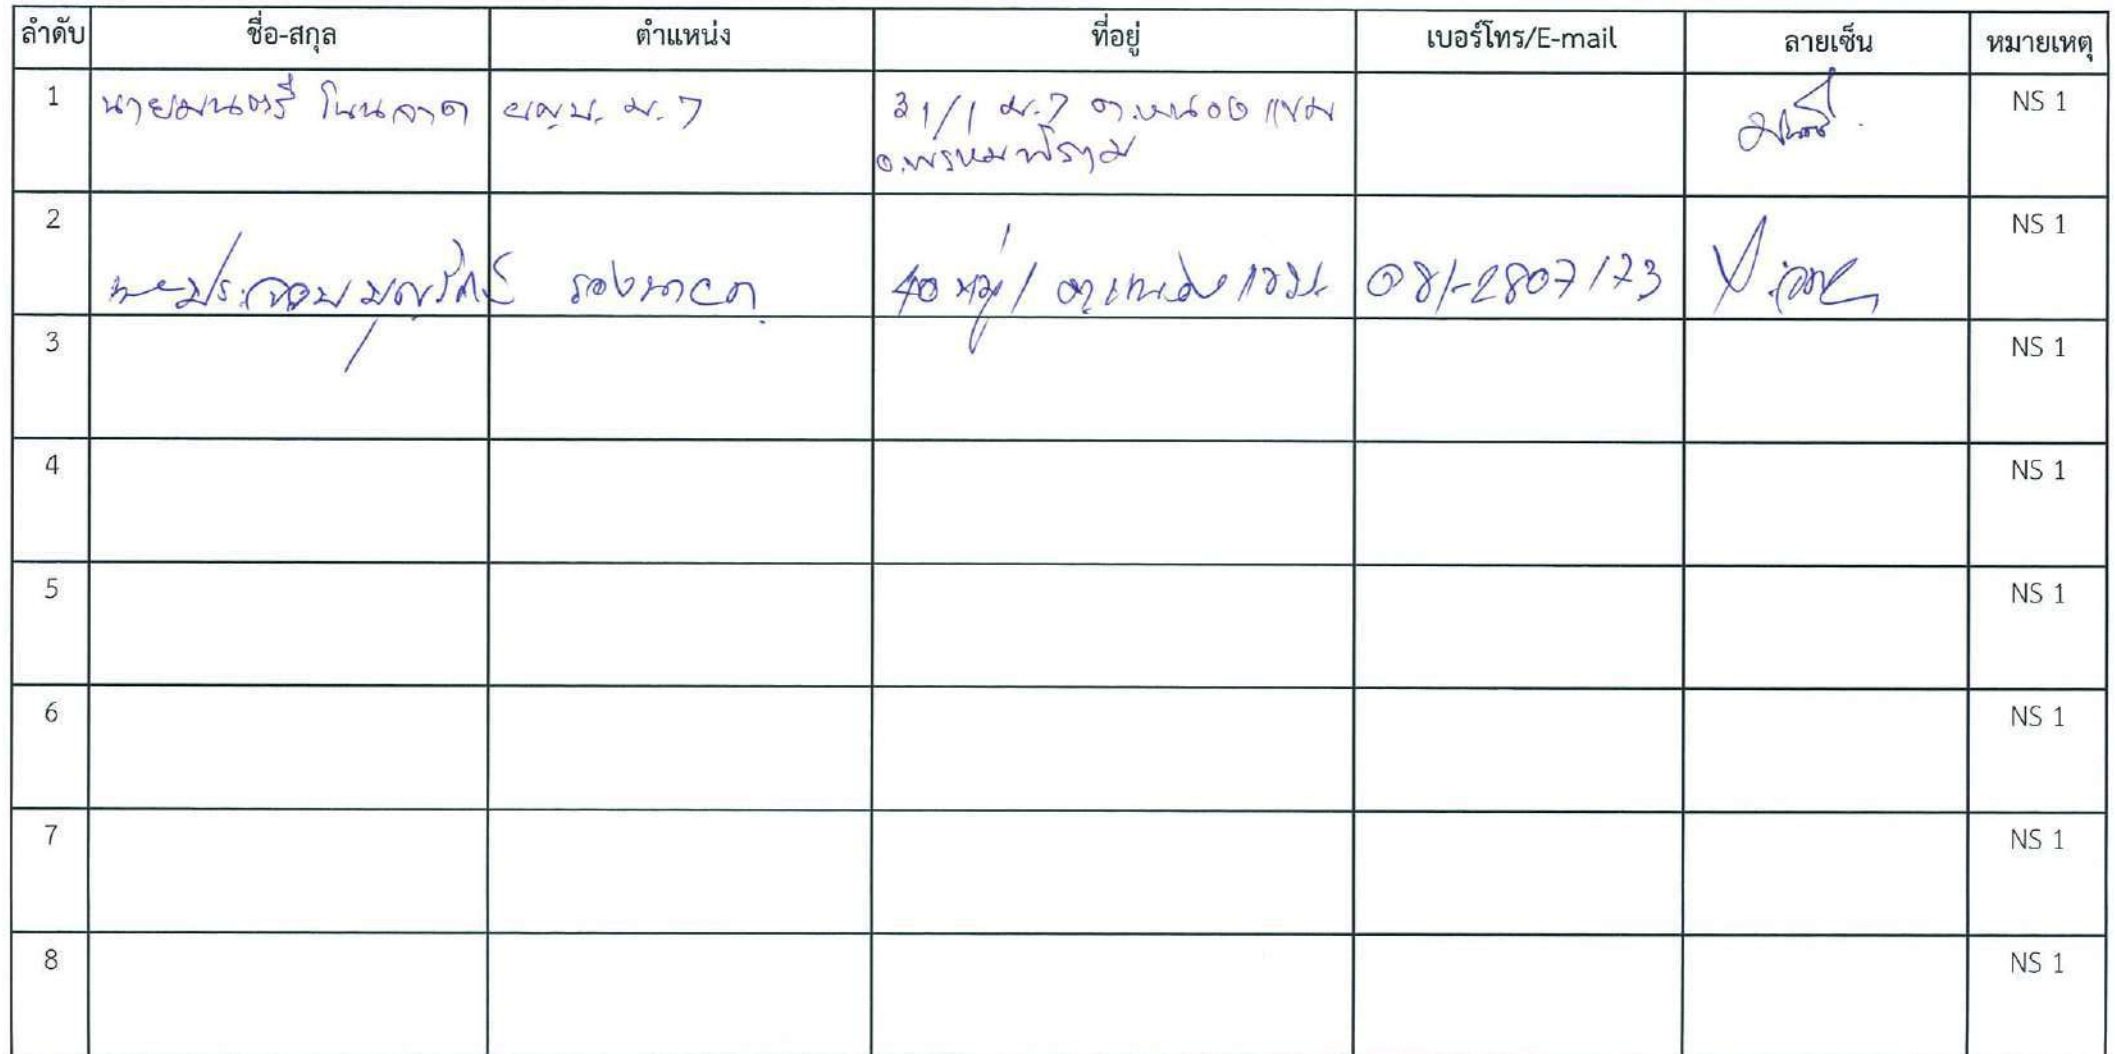 ลำดับ ชื่อ-สกุล ตำแหน่ง ที่อยู่ เบอร์โทร/E-mail ลายเซ็น หมายเหตุ
1 นายมนตรี ผญบ. ม.7 31/1 ม.7 ต.หนองแขม NS 1
อ.พรหมพิราม
2 นายประจวบ บุญรัตน์ รองนายก 40 หมู่ 1 081-2807173 NS 1
3 NS 1
4 NS 1
5 NS 1
6 NS 1
7 NS 1
8 NS 1